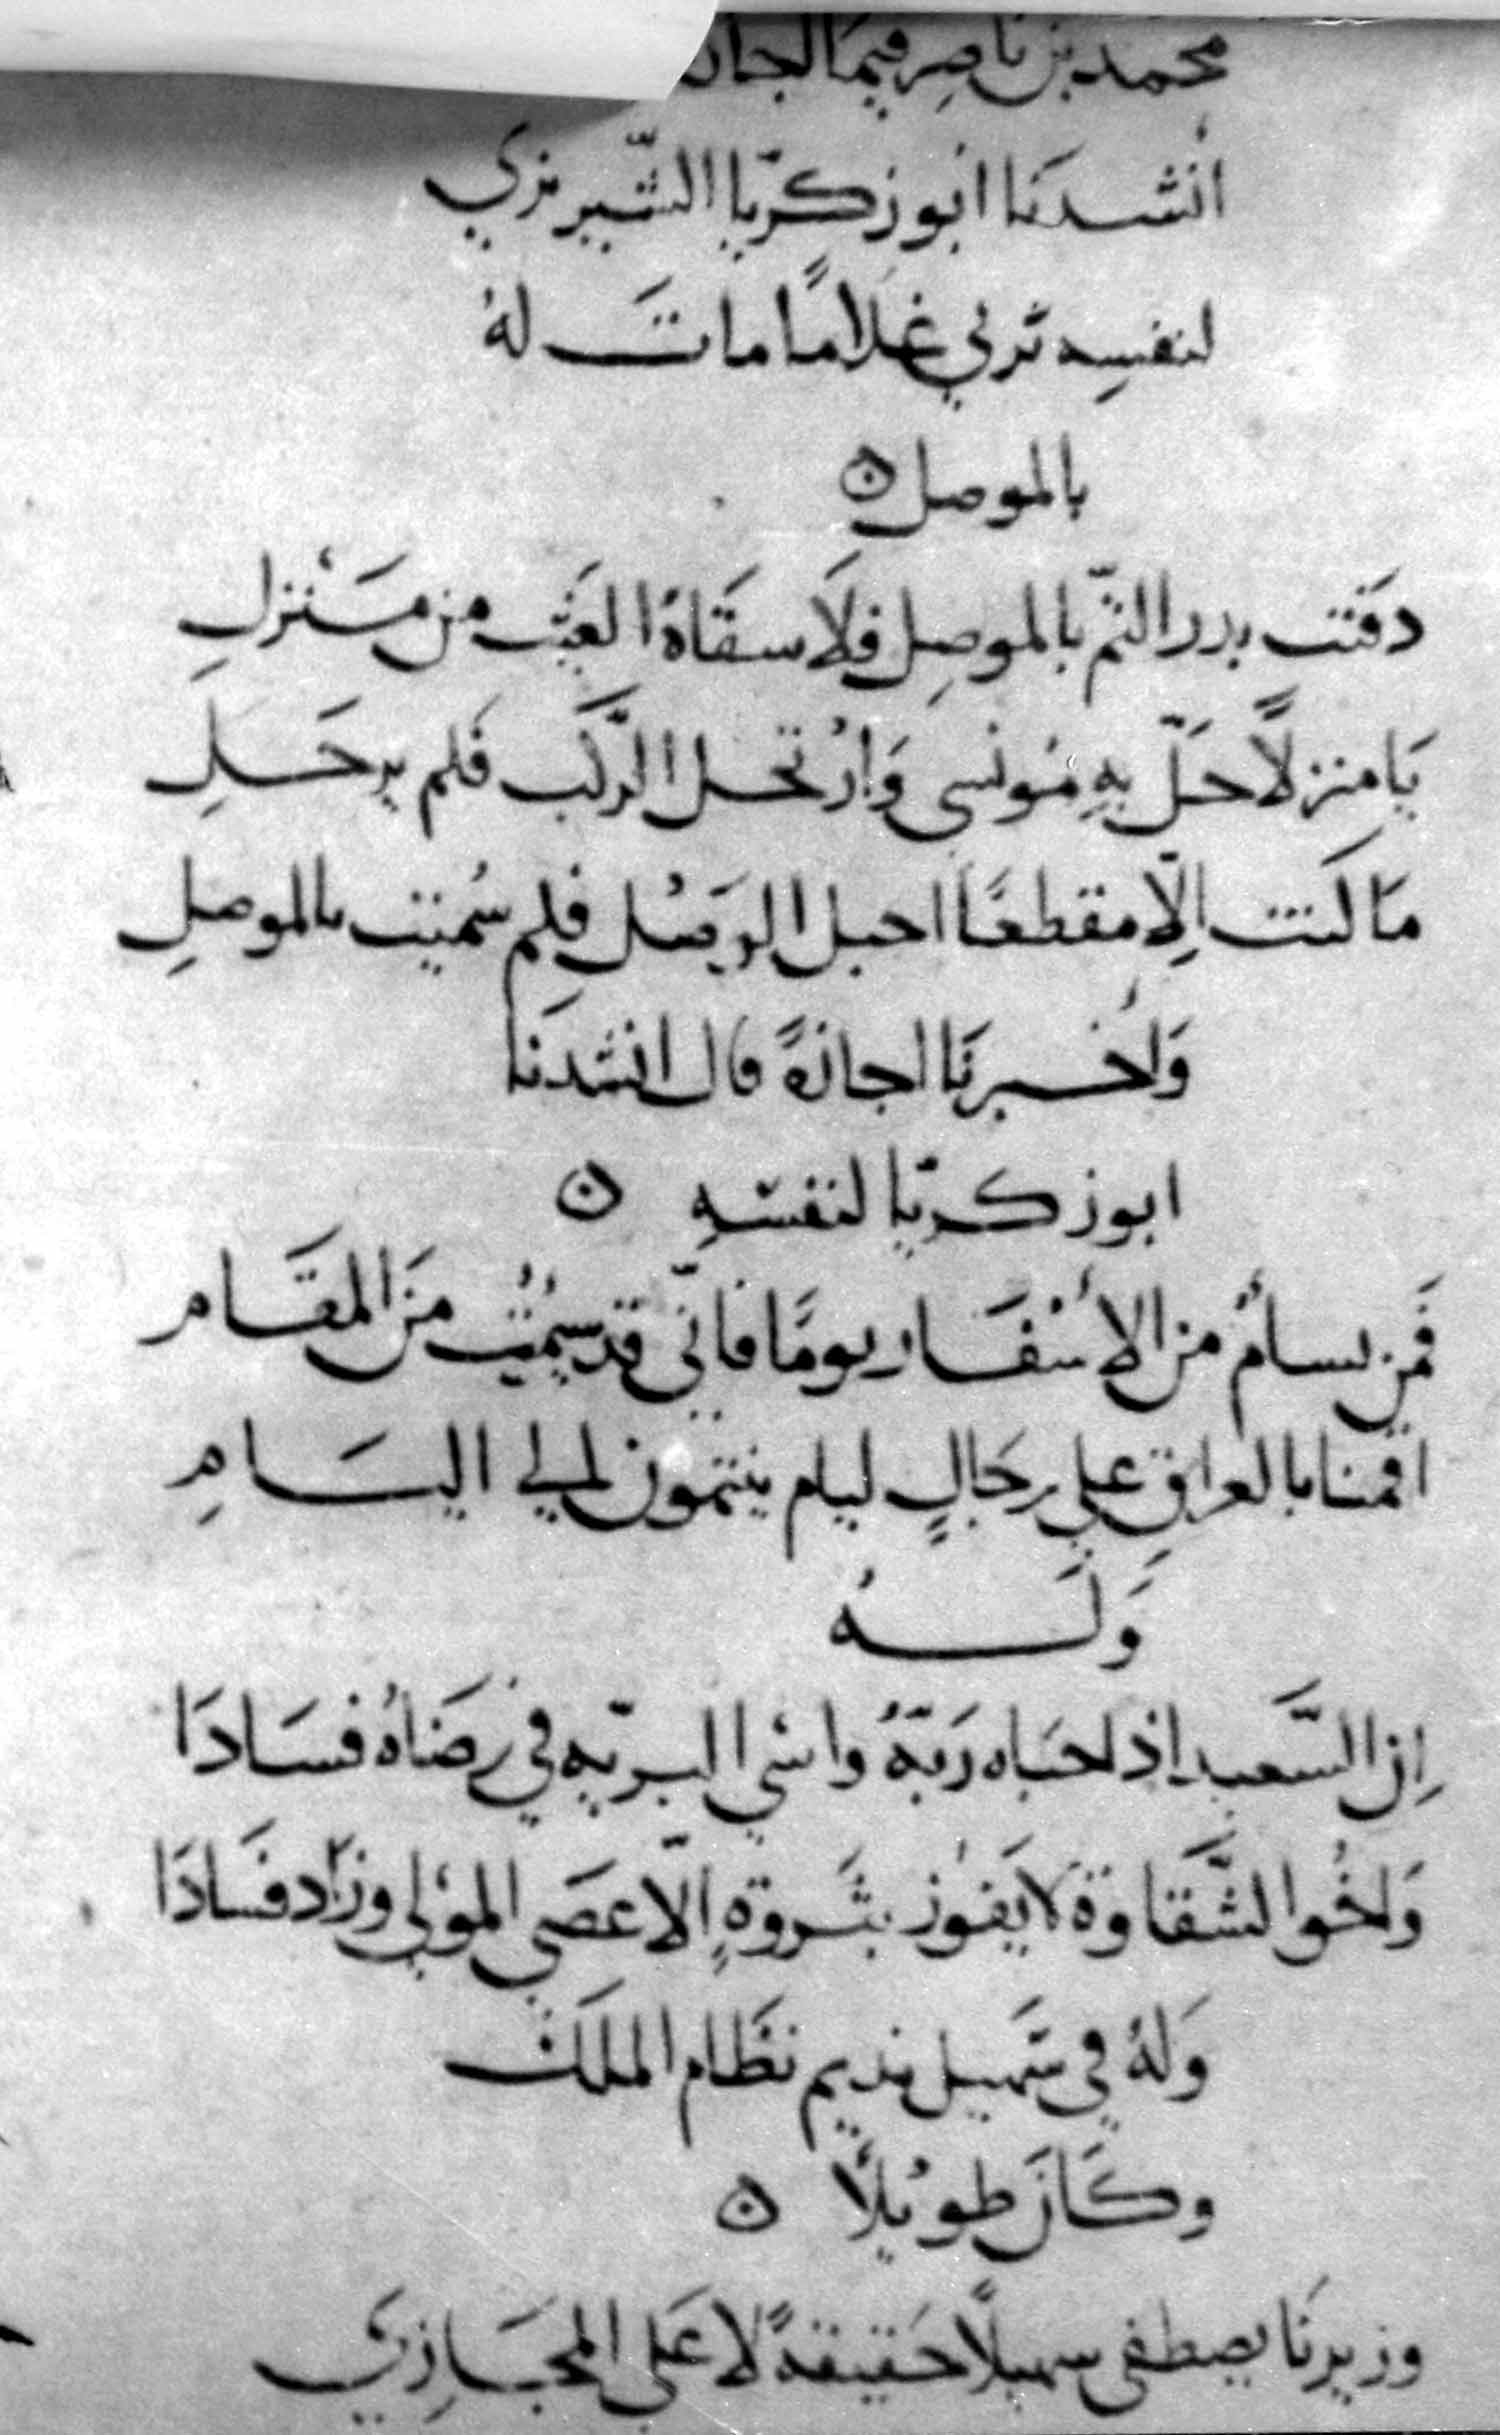 محمد بن ناصر فيما اجازه
انشدنا ابو زكريّا التّبريزي
لنفسِه يرثي غلامًا ماتَ لهُ
بالموصل ه
دفنت بدر التمّ بالموصِل فلَا سقَاهُ الغيث من مَنزلِ
يَا منزلًا حَلّ بِهِ مُونسى وَارتحل الرّكَب فلم يرحَلِ
مَا كنت اِلّا مقطعًا احبل الوَصْل فلِم سُميت بالموصِلِ
وَاَخبرنَا اجازةً قال انشدنَا
ابو زكريّا لنفسِهِ ه
فَمن يسأمْ من الأسْفَار يومًا فانّي قد سئمتُ منَ المقَام
اقمنا بالعراقِ على رجَالٍ ليام ينتمون الى اليسَامِ
وَلَهُ
اِن السَّعيد اذا حبَاه رَبّهُ واسَى البريّه في رضَاهُ فسَادَا
وَاخُوا الشَّقَاوة لا يَفوز بثَروةٍ اِلّا عَصَى المولى وزَاد فسَادَا
وَلهُ في سهيل نديم نظَام الملَك
وكَانَ طويْلًا ه
وزيرنَا يصطفى سهيلًا حَقيقةً لا عَلى المجَازِي